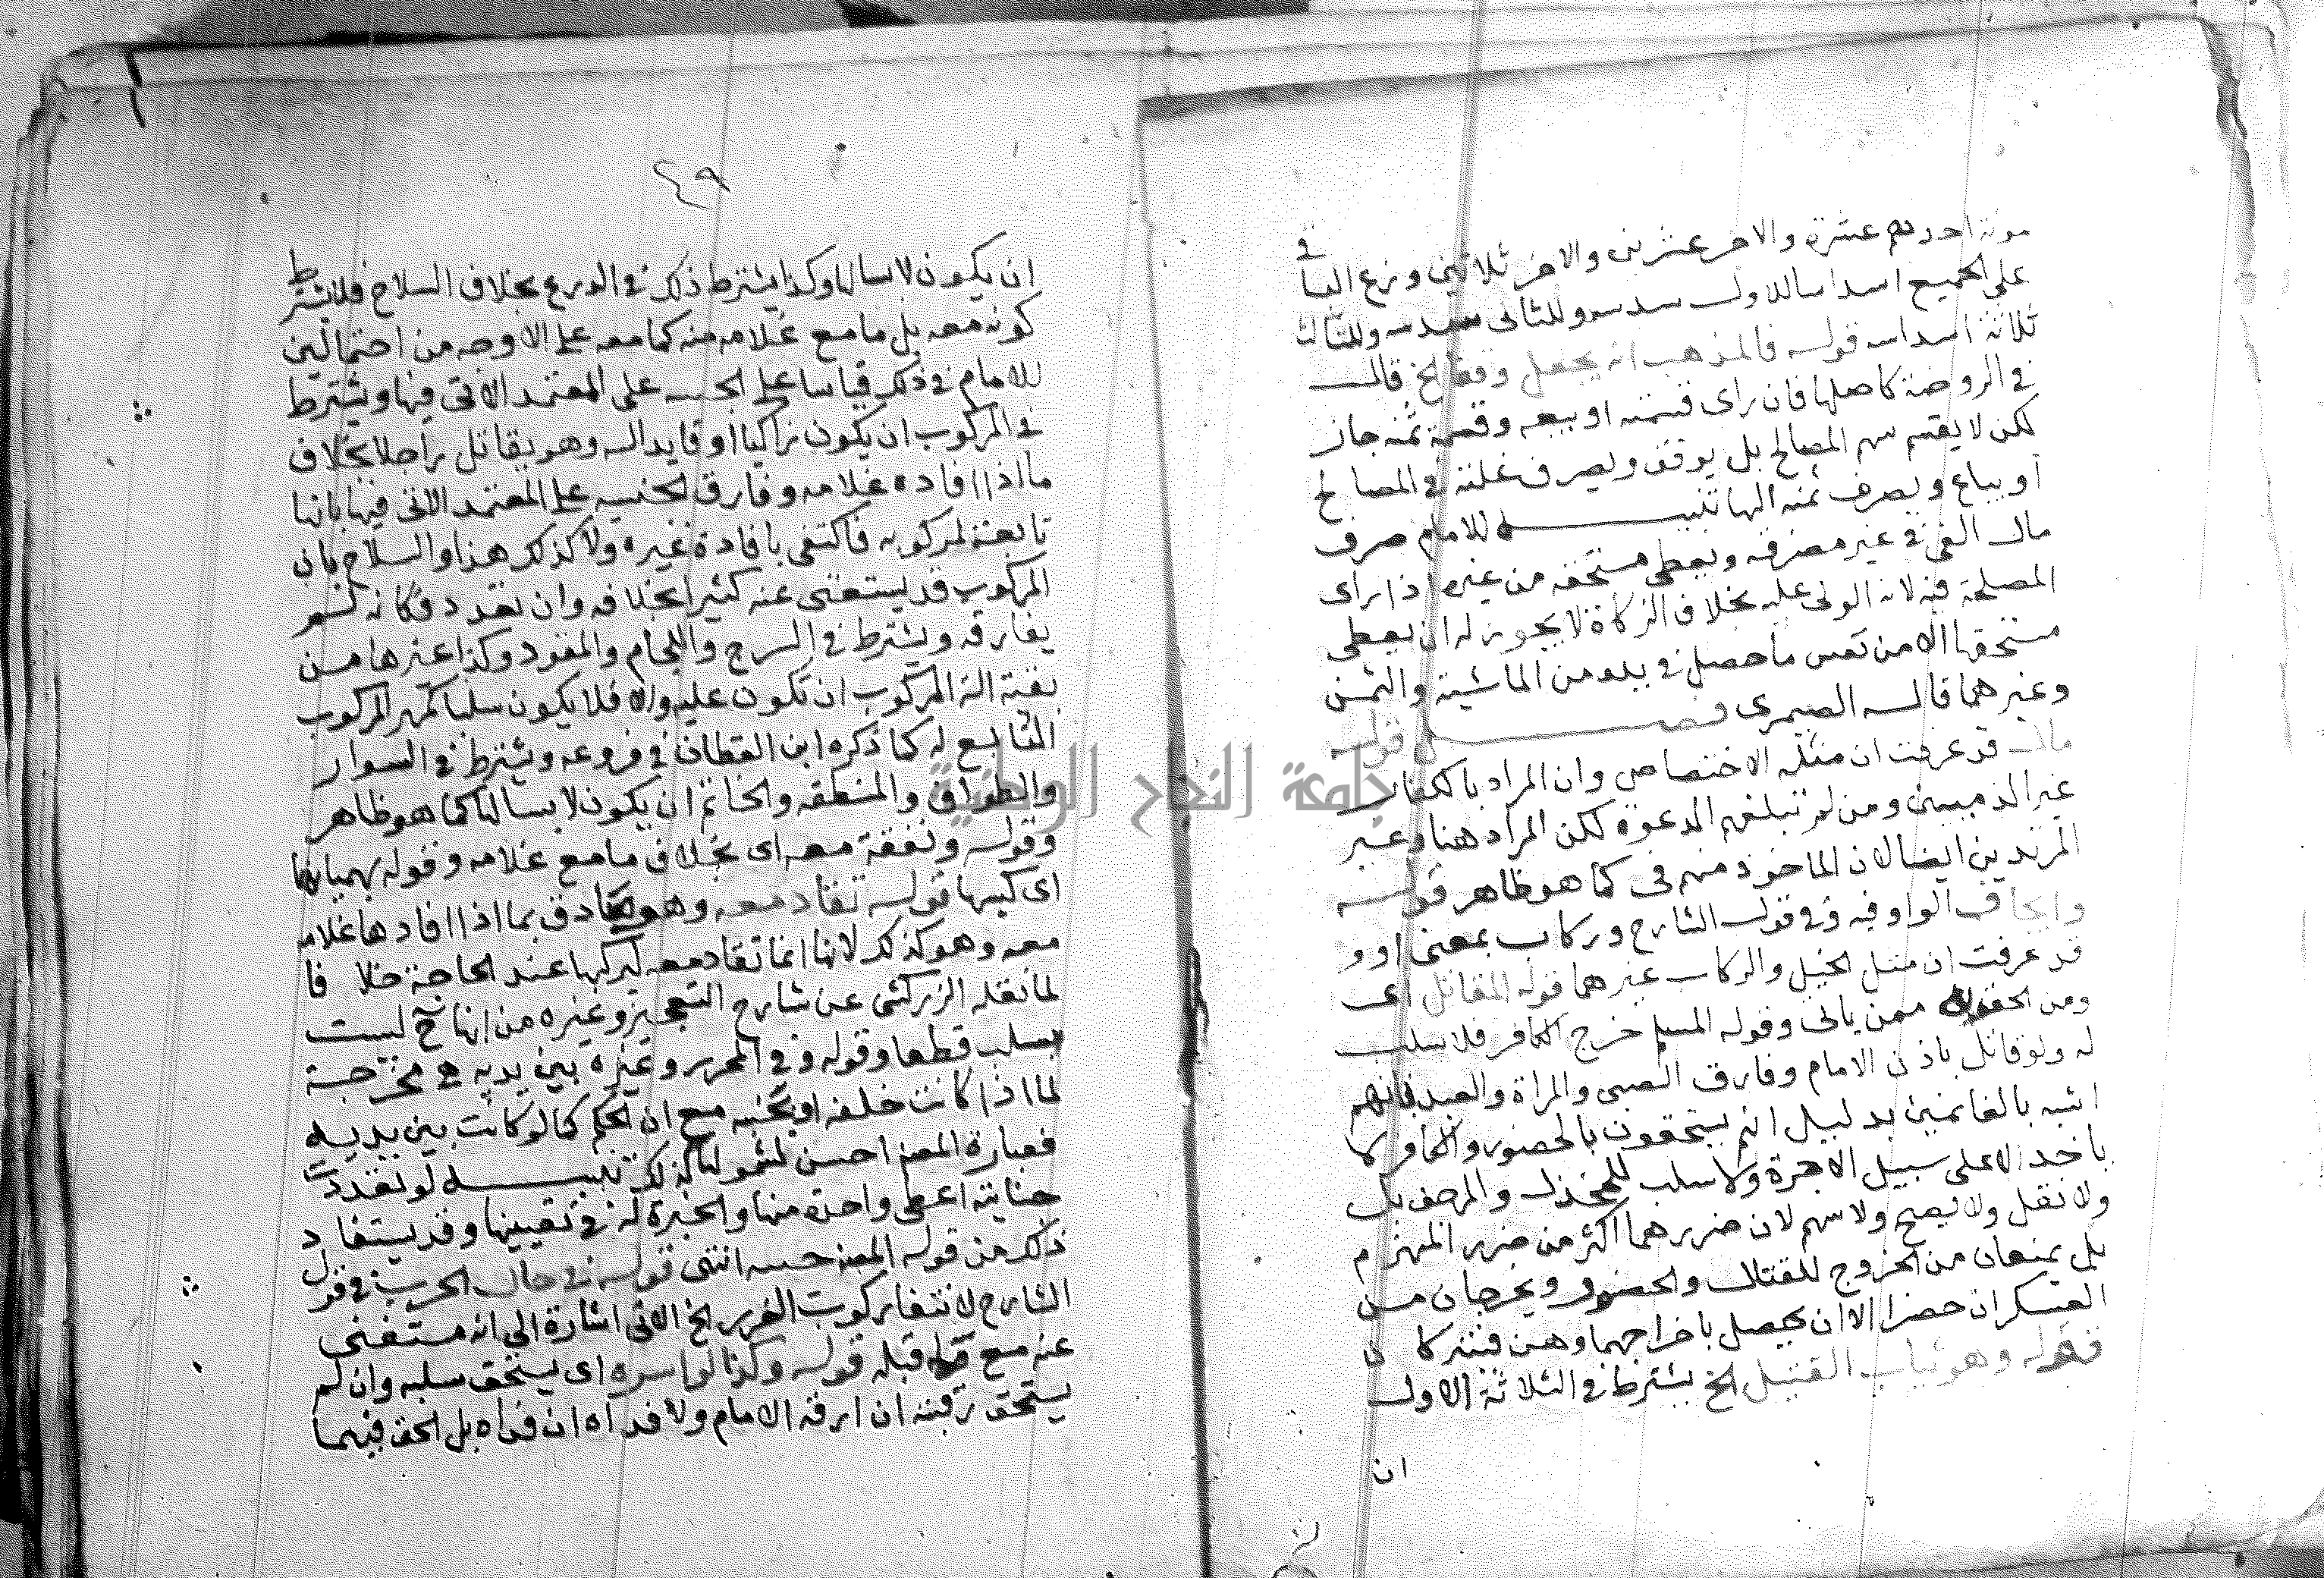 مونة احدهم عشرة والاخر عشرين والاخر ثلاثين وزع الباقي
على الجميع اسداسا للاول سدسه وللثاني سدسه وللثالث
ثلاثة اسداسه قوله فالمذهب انه يجعل وقفا الخ قال
في الروضة كاصلها فان راى قسمته او بيعه وقسمة ثمنه جاز
لكن لا يقسم سهم المصالح بل يوقف ويصرف غلته في المصالح
او يباع ويصرف ثمنه اليها تنبيه للامام صرف
مال الفي في غير مصرفه ويعطى مستحقه من غيره اذا راى
المصلحة فيه لانه الولى عليه بخلاف الزكاة لا يجوز له ان يعطى
مستحقها الا من نفس ما حصل في يده من الماشية والثمن
وغيرهما قاله الصيمرى فصل قوله
مال قد عرفت ان مثله الاختصاص وان المراد بالكفار
غير الذميين ومن لم تبلغهم الدعوة لكن المراد هنا وغير
المرتدين ايضا لان الماخوذ منهم فى كما هو ظاهر قوله
وايجاف الواو فيه وفي قول الشارح وركاب بمعنى او و
قد عرفت ان مثل الخيل والركاب غيرهما قوله المقاتل اى
ومن الحق ممن ياتى وقوله المسلم خرج الكافر فلا سلب
له ولو قاتل باذن الامام وفارق الصبى والمراة والعبد فانهم
اشبه بالغانمين بدليل انهم يستحقون بالحضور والكافر لا
ياخذ الا على سبيل الاجرة ولا سلب للمخذل والمرجف بل
ولا نفل ولا يصح ولا سهم لان ضررهما اكثر من ضرر المنهزم
بل يمنعان من الخروج للقتال والحضور ويخرجان من
العسكر ان حضرا الا ان يحصل باخراجهما وهن فيتركان
قوله وهو ثياب القتيل الخ يشترط في الثلاثة الاول
ان
٤٩
ان يكون لابسا لها وكذا يشترط ذلك في الدرع بخلاف السلاح فلا يشترط
كونه معه بل ما مع غلامه منه كما معه على الاوجه من احتمالين
للامام في ذلك قياسا على الجنيبه على المعتمد الاتى فيها ويشترط
في المركوب ان يكون راكبا او قايدا له وهو يقاتل راجلا بخلاف
ما اذا اقاده غلامه وفارق الجنيبه على المعتمد الاتى فيها بانها
تابعة لمركوبه فاكتفى باقادة غيره ولا كذلك هذا والسلاح بان
المركوب قد يستغنى عنه كثيرا بخلافه وان تعدد فكانه لم
يفارقه ويشترط في السرج واللجام والمقود وكذا غيرها من
بقية الة المركوب ان تكون عليه والا فلا يكون سلبا كمهر المركوب
التابع له كما ذكره ابن القطان في فروعه ويشترط في السوار
والطوق والمنطقه والخاتم ان يكون لابسا لها كما هو ظاهر
وقوله ونفقة معه اى بخلاف ما مع غلامه وقوله بهميانها
اى كيسها قوله تقاد معه وهو صادق بما اذا اقادها غلامه
معه وهو كذلك لانها انما تقاد معه ليركبها عند الحاجة خلافا
لما نقله الزركشى عن شارح التعجيز وغيره من انها ح ليست
بسلب قطعا وقوله وفي المحرر وغيره بين يديه هي مخرجة
لما اذا كانت خلفه او بجنبه مع ان الحكم كما لو كانت بين يديه
فعبارة المصنف احسن لشمولها لذلك تنبيه لو تعددت
جنايبه اعطى واحدة منها والخيرة له في تعيينها وقد يستفاد
ذلك من قوله المصنف جنيبه انتهى قوله في حال الحرب في قول
الشارح لانتفا ركوب الغرر الخ الاتى اشارة الى انه مستغنى
عنه مع قبله قوله وكذا لو اسره اى يستحق سلبه وان لم
يستحق رقبته ان ارقه الامام ولا فداه ان فداه بل الحق فيهما